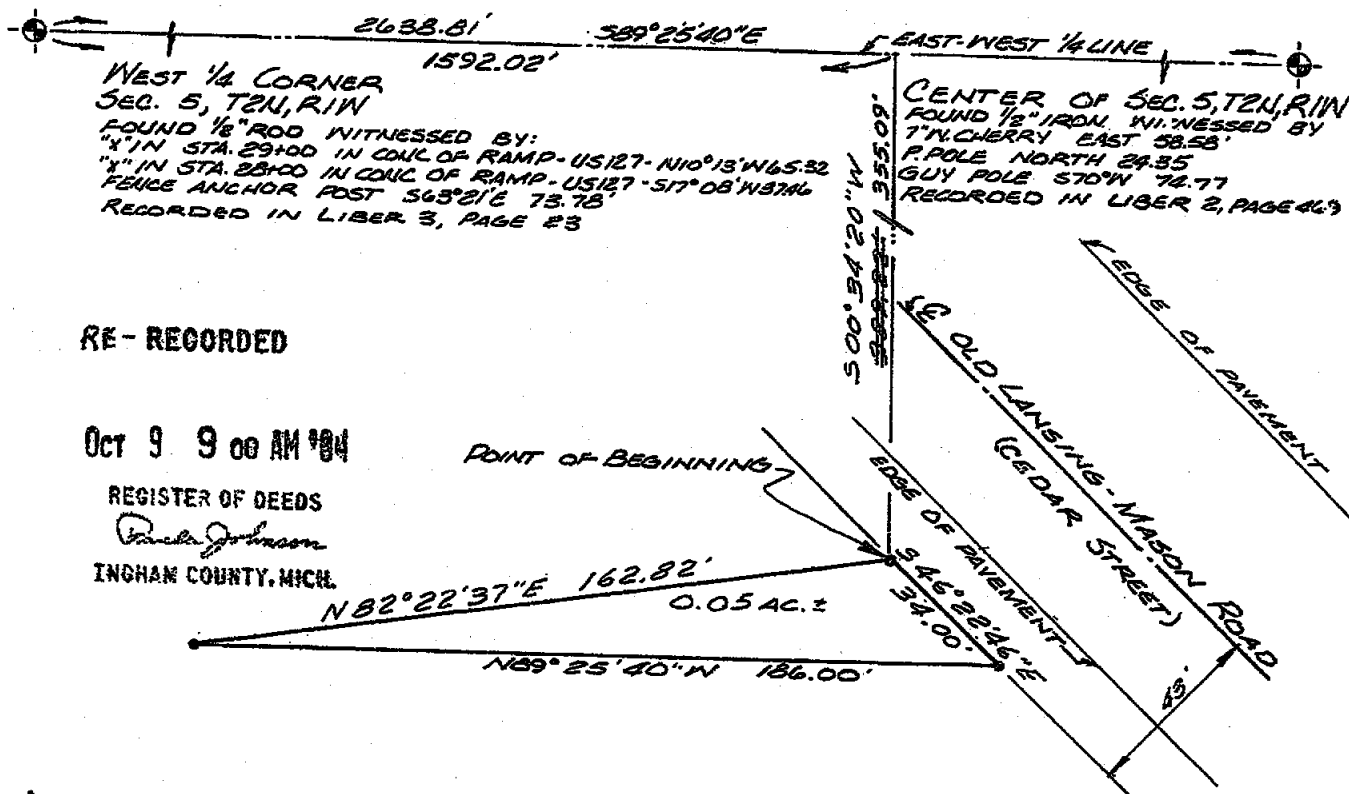 2638.81' S89°25'40"E
1592.02'
EAST-WEST 1/4 LINE
WEST 1/4 CORNER
SEC. 5, T2N, R1W
FOUND 1/2" ROD WITNESSED BY:
"X" IN STA. 29+00 IN CONC OF RAMP-US127-N10°13'W65.32
"X" IN STA. 28+00 IN CONC OF RAMP-US127-S17°08'W37.46
FENCE ANCHOR POST S63°21'E 73.78'
RECORDED IN LIBER 3, PAGE 23
CENTER OF SEC. 5, T2N, R1W
FOUND 1/2" IRON, WITNESSED BY
7" N. CHERRY EAST 58.58'
P. POLE NORTH 24.35
GUY POLE S70°W 74.77
RECORDED IN LIBER 2, PAGE 463
S 00°34'20"W
355.09'
EDGE OF PAVEMENT
℄ OLD LANSING-MASON ROAD
(CEDAR STREET)
RE-RECORDED
OCT 9 9 00 AM '84
REGISTER OF DEEDS
Paula Johnson
INGHAM COUNTY, MICH.
POINT OF BEGINNING
EDGE OF PAVEMENT
N82°22'37"E 162.82'
0.05 AC.±
S46°22'46"E
34.00'
N89°25'40"W 186.00'